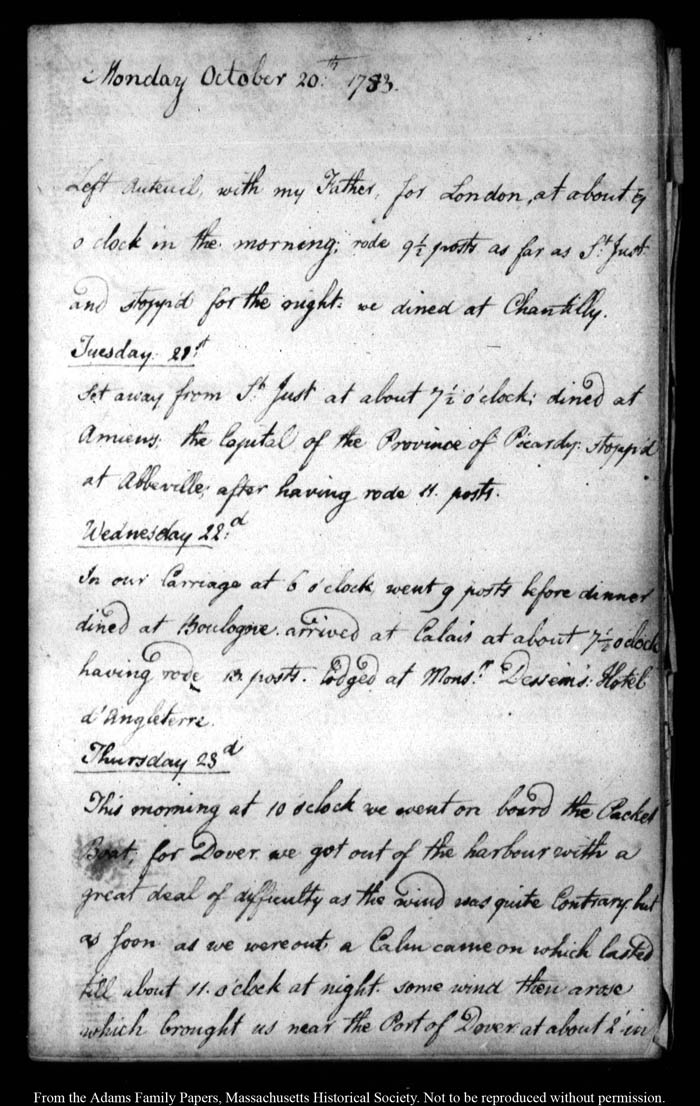 Monday October 20.th 1783.
Left Auteuil, with my Father, for London, at about 9
o clock in the morning; rode 9½ posts as far as St. Just
and stopp'd for the night: we dined at Chantilly.
Tuesday. 21.st
Set away from St. Just at about 7½ o'clock; dined at
Amiens, the Capital of the Province of Picardy: stopp'd
at Abbeville; after having rode 11. posts.
Wednesday 22.d
In our Carriage at 6 o'clock, went 9 posts before dinner
dined at Boulogne. arrived at Calais at about 7½ o clock
having rode 13. posts. lodged at Mons.r Dessein's: Hotel
d'Angleterre.
Thursday 23d
This morning at 10 o clock we went on board the Packet
Boat, for Dover. we got out of the harbour with a
great deal of difficulty as the wind was quite Contrary. but
as soon as we were out, a Calm came on which lasted
till about 11. o'clock at night. some wind then arose
which brought us near the Port of Dover at about 2 in
From the Adams Family Papers, Massachusetts Historical Society. Not to be reproduced without permission.